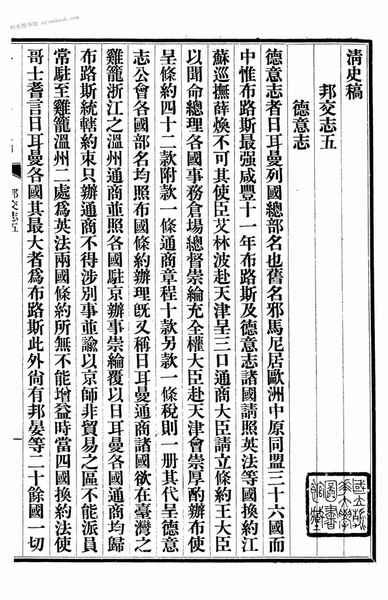 清史稿
邦交志五
德意志
德意志者日耳曼列國總部名也舊名邪馬尼居歐洲中原同盟三十六國而
中惟布路斯最强咸豐十一年布路斯及德意志諸國請照英法等國換約江
蘇巡撫薛煥不可其使臣艾林波赴天津呈三口通商大臣請立條約王大臣
以聞命總理各國事務倉場總督崇綸充全權大臣赴天津會崇厚酌辦布使
呈條約四十二款附款一條通商章程十款另款一條稅則一册其代呈德意
志公會各國部名均照布國條約辦理旣又稱日耳曼通商諸國欲在臺灣之
雞籠浙江之溫州通商並照各國駐京辦事崇綸覆以日耳曼各國通商均歸
布路斯統轄約束只辦通商不得涉別事並諭以京師非貿易之區不能派員
常駐至雞籠溫州二處爲英法兩國條約所無不能增益時當四國換約法使
哥士耆言日耳曼各國其最大者爲布路斯此外尙有邦晏等二十餘國一切
邦交志五
一